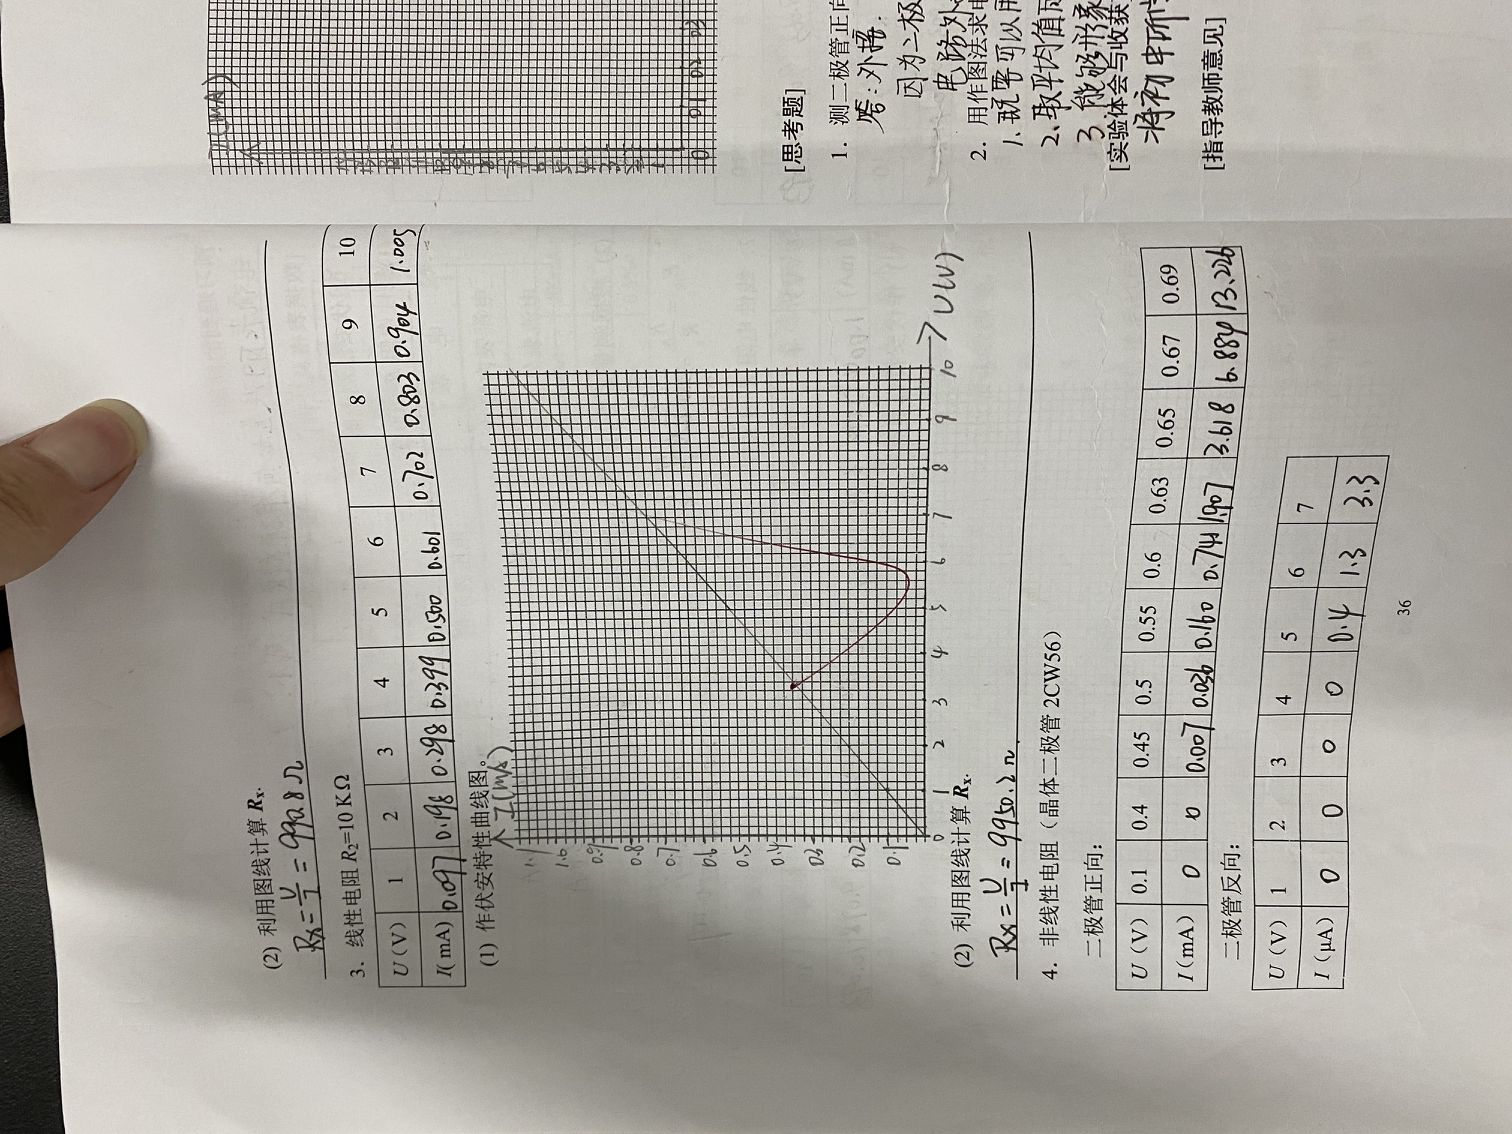 (2) 利用图线计算 Rx.
Rx = U/I = 990.8Ω
3．线性电阻 R2=10 KΩ
U(V) 1 2 3 4 5 6 7 8 9 10
I( mA) 0.097 0.198 0.298 0.399 0.500 0.601 0.702 0.803 0.904 1.005
(1) 作伏安特性曲线图。
I(mA)
1.1
1.0
0.9
0.8
0.7
0.6
0.5
0.4
0.3
0.2
0.1
0 1 2 3 4 5 6 7 8 9 10 U(V)
(2) 利用图线计算 Rx.
Rx = U/I = 9950.2Ω.
4．非线性电阻（晶体二极管 2CW56）
二极管正向：
U（V） 0.1 0.4 0.45 0.5 0.55 0.6 0.63 0.65 0.67 0.69
I(mA) 0 0 0.007 0.036 0.160 0.741 1.907 3.618 6.884 13.226
二极管反向：
U（V） 1 2 3 4 5 6 7
I（μA） 0 0 0 0 0.4 1.3 3.3
36
I(mA)
0 0.1 0.2 0.3
[思考题]
1．测二极管正向
答：外接.
因为二极
电路外
2．用作图法求电
1.既要可以用
2.取平均值
3.能够形象
[实验体会与收获]
将初中所学
[指导教师意见]